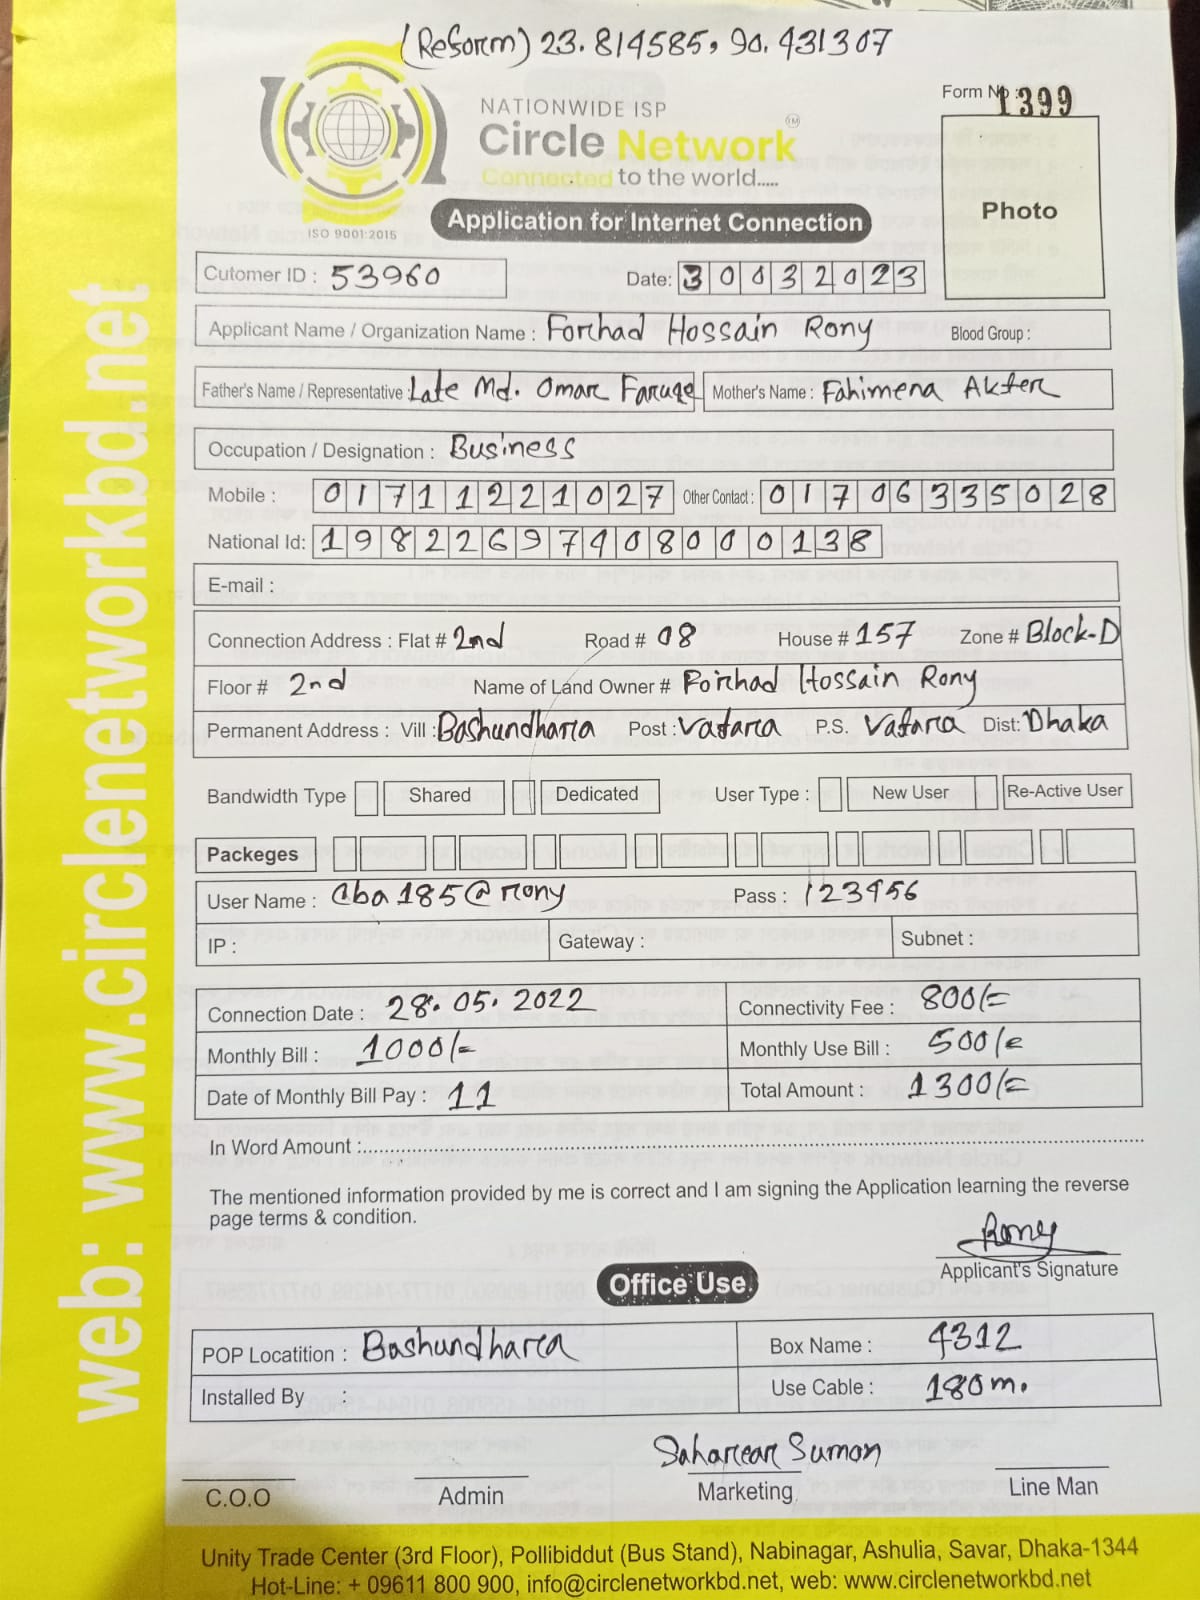 (Reform) 23.814585, 90.431307
Form No : 1399
NATIONWIDE ISP
Circle Network TM
Connected to the world.....
ISO 9001:2015
Application for Internet Connection
Photo
Cutomer ID : 53960
Date: 30032023
Applicant Name / Organization Name : Forhad Hossain Rony Blood Group :
Father's Name / Representative : Late Md. Omar Faruqe Mother's Name : Fahimena Akter
Occupation / Designation : Business
Mobile : 01711221027 Other Contact : 01706335028
National Id: 19822697408000138
E-mail :
Connection Address : Flat # 2nd Road # 08 House # 157 Zone # Block-D
Floor # 2nd Name of Land Owner # Forhad Hossain Rony
Permanent Address : Vill : Bashundhara Post : Vatara P.S. Vatara Dist: Dhaka
Bandwidth Type Shared Dedicated User Type : New User Re-Active User
Packeges
User Name : cba185@rony Pass : 123456
IP : Gateway : Subnet :
Connection Date : 28.05.2022 Connectivity Fee : 800/=
Monthly Bill : 1000/= Monthly Use Bill : 500/=
Date of Monthly Bill Pay : 11 Total Amount : 1300/=
In Word Amount :
The mentioned information provided by me is correct and I am signing the Application learning the reverse
page terms & condition.
Rony
Applicant's Signature
Office Use.
POP Locatition : Bashundhara Box Name : 4312
Installed By : Use Cable : 180m.
Saharear Sumon
C.O.O Admin Marketing Line Man
Unity Trade Center (3rd Floor), Pollibiddut (Bus Stand), Nabinagar, Ashulia, Savar, Dhaka-1344
Hot-Line: + 09611 800 900, info@circlenetworkbd.net, web: www.circlenetworkbd.net
web: www.circlenetworkbd.net